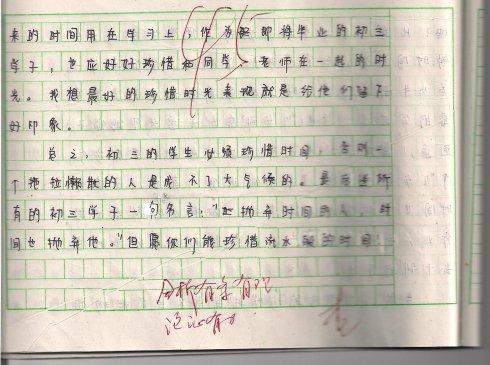 来的时间用在学习上 作为即将毕业的初三
学子,也应好好珍惜和同学、老师在一起的时
光。我想最好的珍惜时光表现就是给他们留下
好印象。
总之,初三的学生必须珍惜时间,否则一
个拖拉懒散的人是成不了大气候的。最后送所
有的初三学子一句名言:"抛弃时间的人,时
间也抛弃他。"但愿你们能珍惜流水般的时间
45
分析有字有理
论证有力